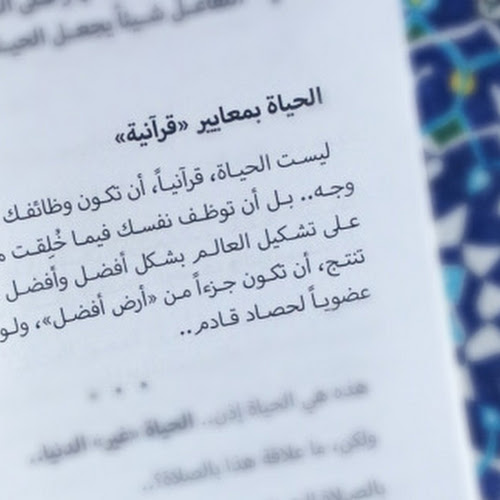 التفاعل شيئاً يجعل
الحياة بمعايير «قرآنية»
ليست الحياة، قرآنياً، أن تكون وظائفك
وجه.. بل أن توظف نفسك فيما خُلِقت
على تشكيل العالم بشكل أفضل وأفضل
تنتج، أن تكون جزءاً من «أرض أفضل»، ولو
عضوياً لحصاد قادم..
* * *
هذه هي الحياة إذن.. الحياة «غير» الدنيا..
ولكن، ما علاقة هذا بالصلاة؟..